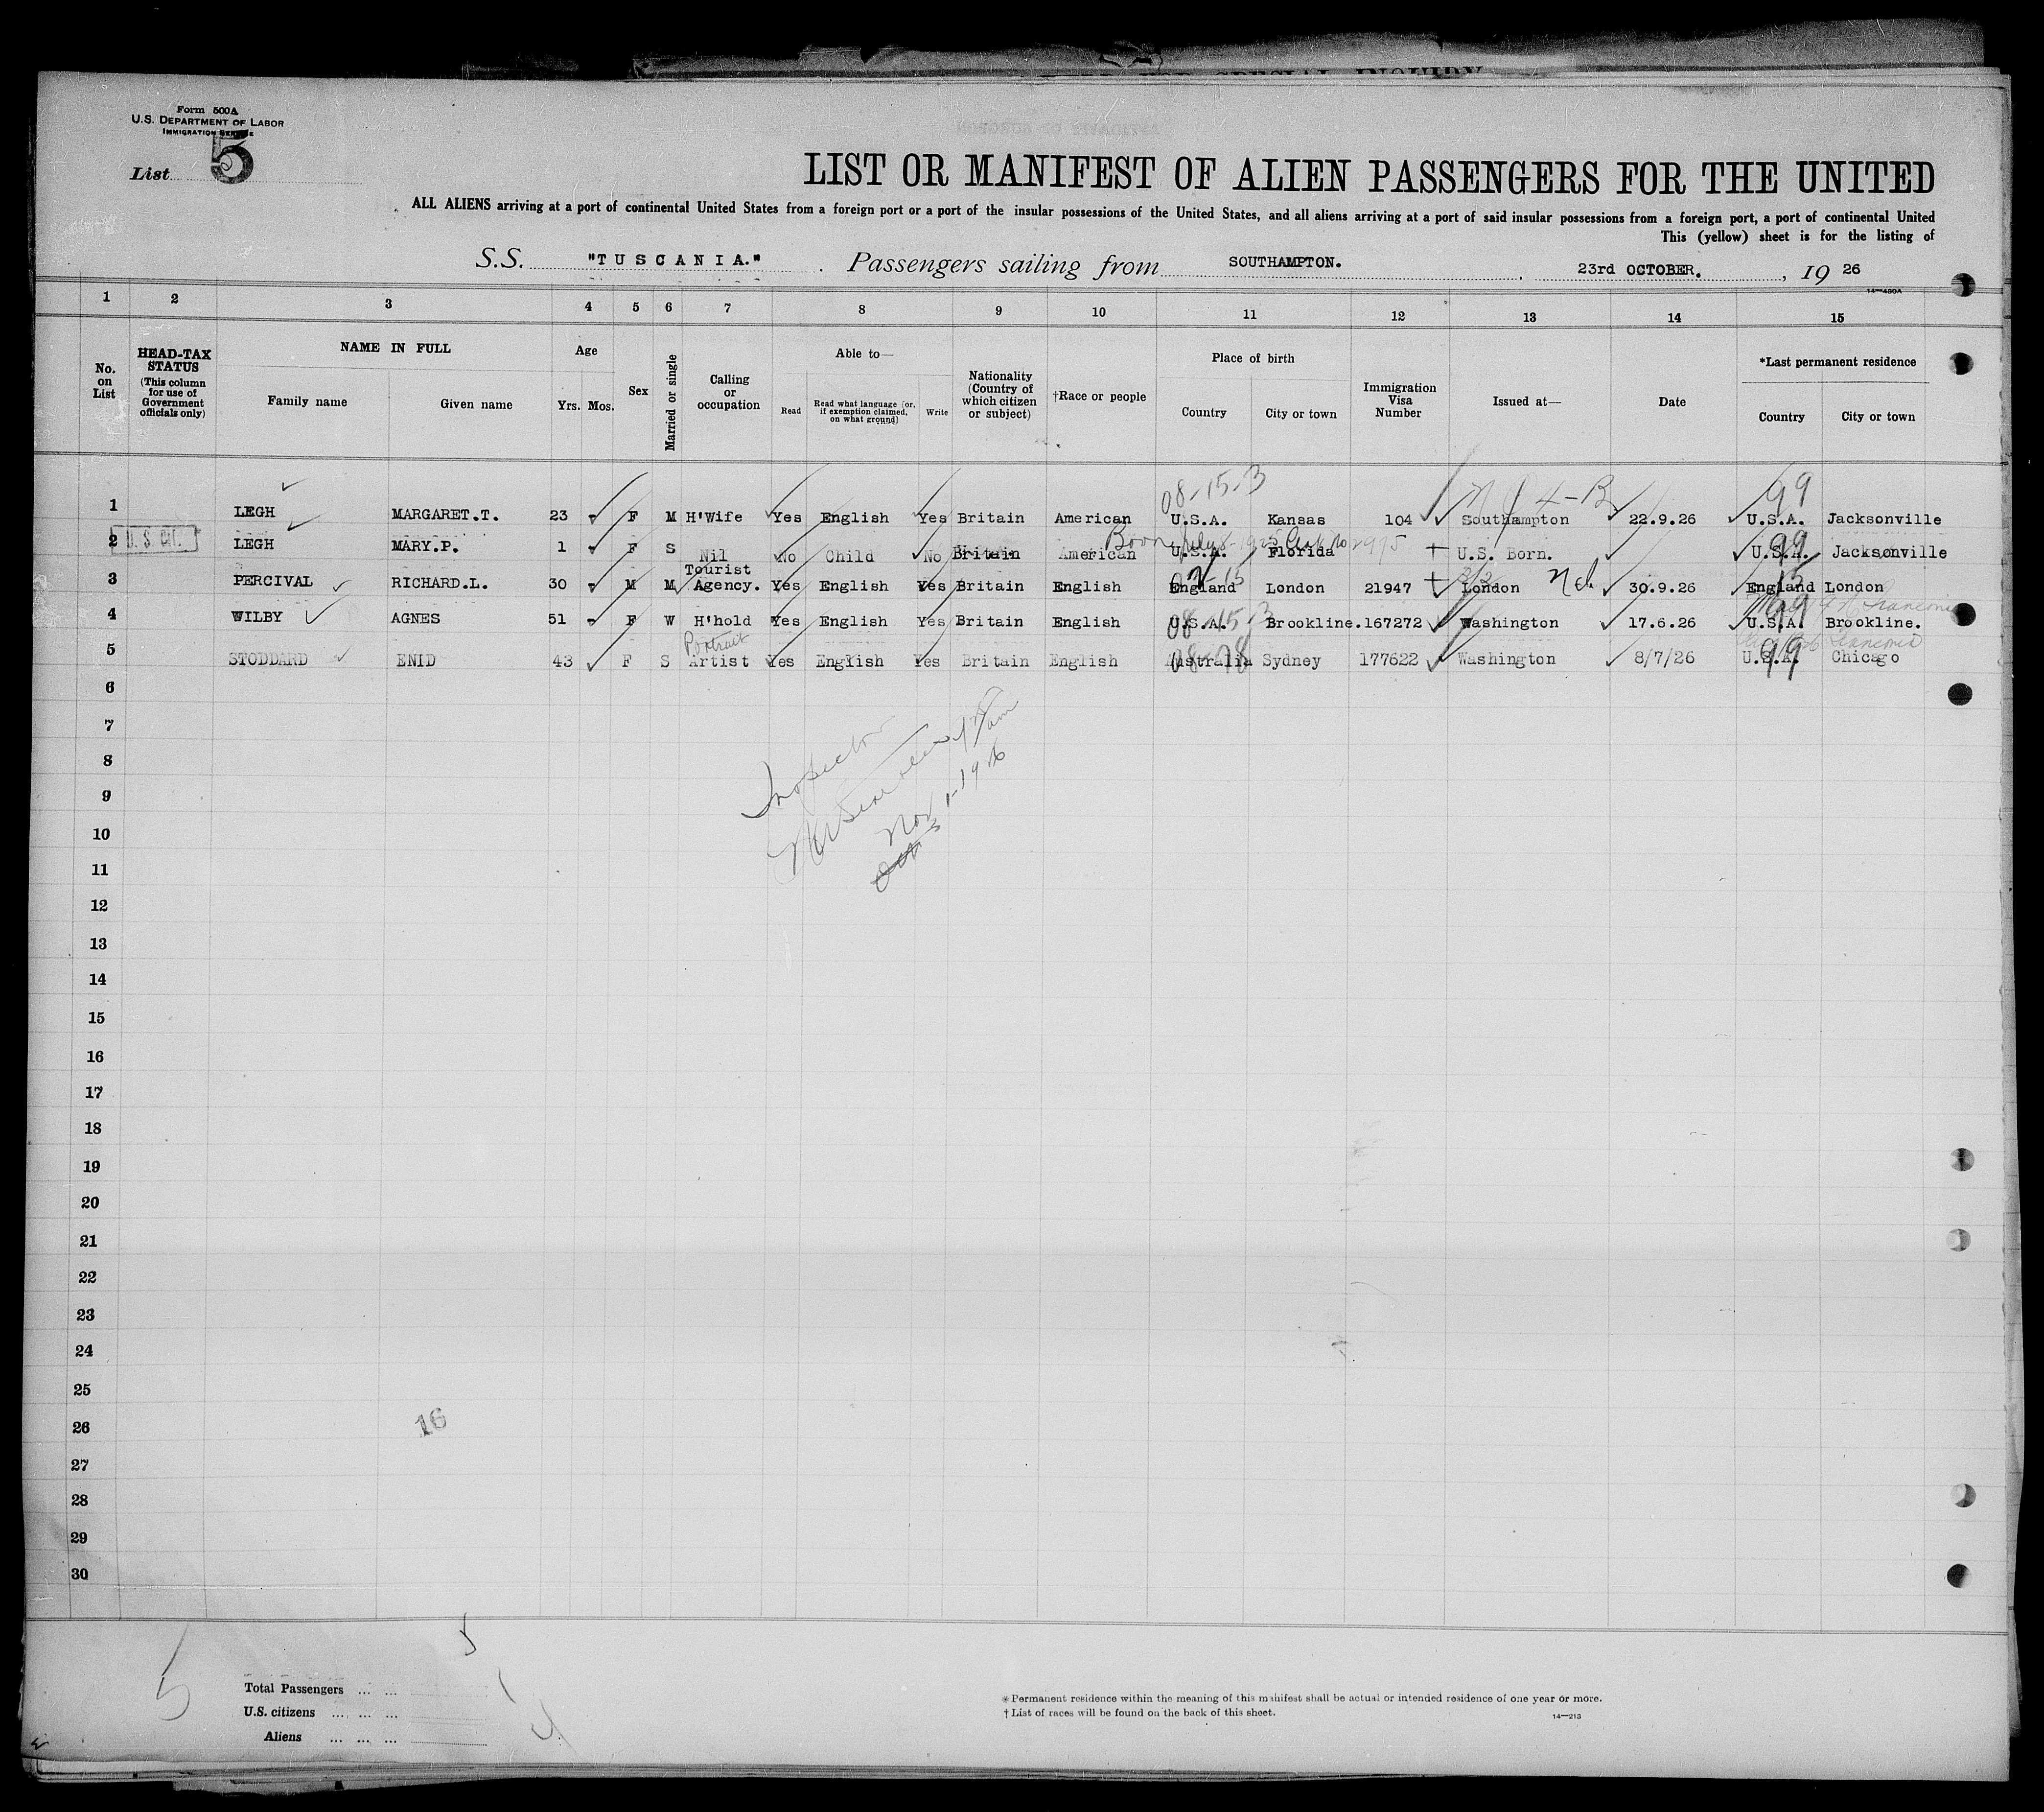 FOR SPECIAL INQUIRY
Form 500A
U.S. DEPARTMENT OF LABOR
IMMIGRATION SERVICE
List 5
LIST OR MANIFEST OF ALIEN PASSENGERS FOR THE UNITED
ALL ALIENS arriving at a port of continental United States from a foreign port or a port of the insular possessions of the United States, and all aliens arriving at a port of said insular possessions from a foreign port, a port of continental United
This (yellow) sheet is for the listing of
S.S. "TUSCANIA." Passengers sailing from SOUTHAMPTON. 23rd OCTOBER. , 19 26
14—480A
1 2 3 4 5 6 7 8 9 10 11 12 13 14 15
No. on List
HEAD-TAX STATUS (This column for use of Government officials only)
NAME IN FULL
Family name Given name
Age
Yrs. Mos.
Sex
Married or single
Calling or occupation
Able to—
Read Read what language (or, if exemption claimed, on what ground) Write
Nationality (Country of which citizen or subject)
†Race or people
Place of birth
Country City or town
Immigration Visa Number
Issued at—
Date
*Last permanent residence
Country City or town
08-15-3 4-B 99
1 LEGH MARGARET.T. 23 - F M H'Wife Yes English Yes Britain American U.S.A. Kansas 104 Southampton 22.9.26 U.S.A. Jacksonville
Born July 8-1925
2 U. S. CIT. LEGH MARY.P. 1 - F S Nil No Child No Britain American U.S.A. Florida U.S. Born. U.S.A. Jacksonville 99
3 PERCIVAL RICHARD.L. 30 - M M Tourist Agency. Yes English Yes Britain English England London 21947 London 30.9.26 England London 15
4 WILBY AGNES 51 - F W H'hold Yes English Yes Britain English U.S.A. 08-15-3 Brookline. 167272 Washington 17.6.26 U.S.A. Brookline. 99
Portrait
5 STODDARD ENID 43 F S Artist Yes English Yes Britain English Australia Sydney 177622 Washington 8/7/26 U.S.A. Chicago 99
6
7
Inspector
8
9
Nov 1-1926
10
11
12
13
14
15
16
17
18
19
20
21
22
23
24
25
26 16
27
28
29
30
5
Total Passengers ... ...
U.S. citizens ... ... ... 1
Aliens ... ... ... 4
*Permanent residence within the meaning of this manifest shall be actual or intended residence of one year or more.
†List of races will be found on the back of this sheet.
14—213